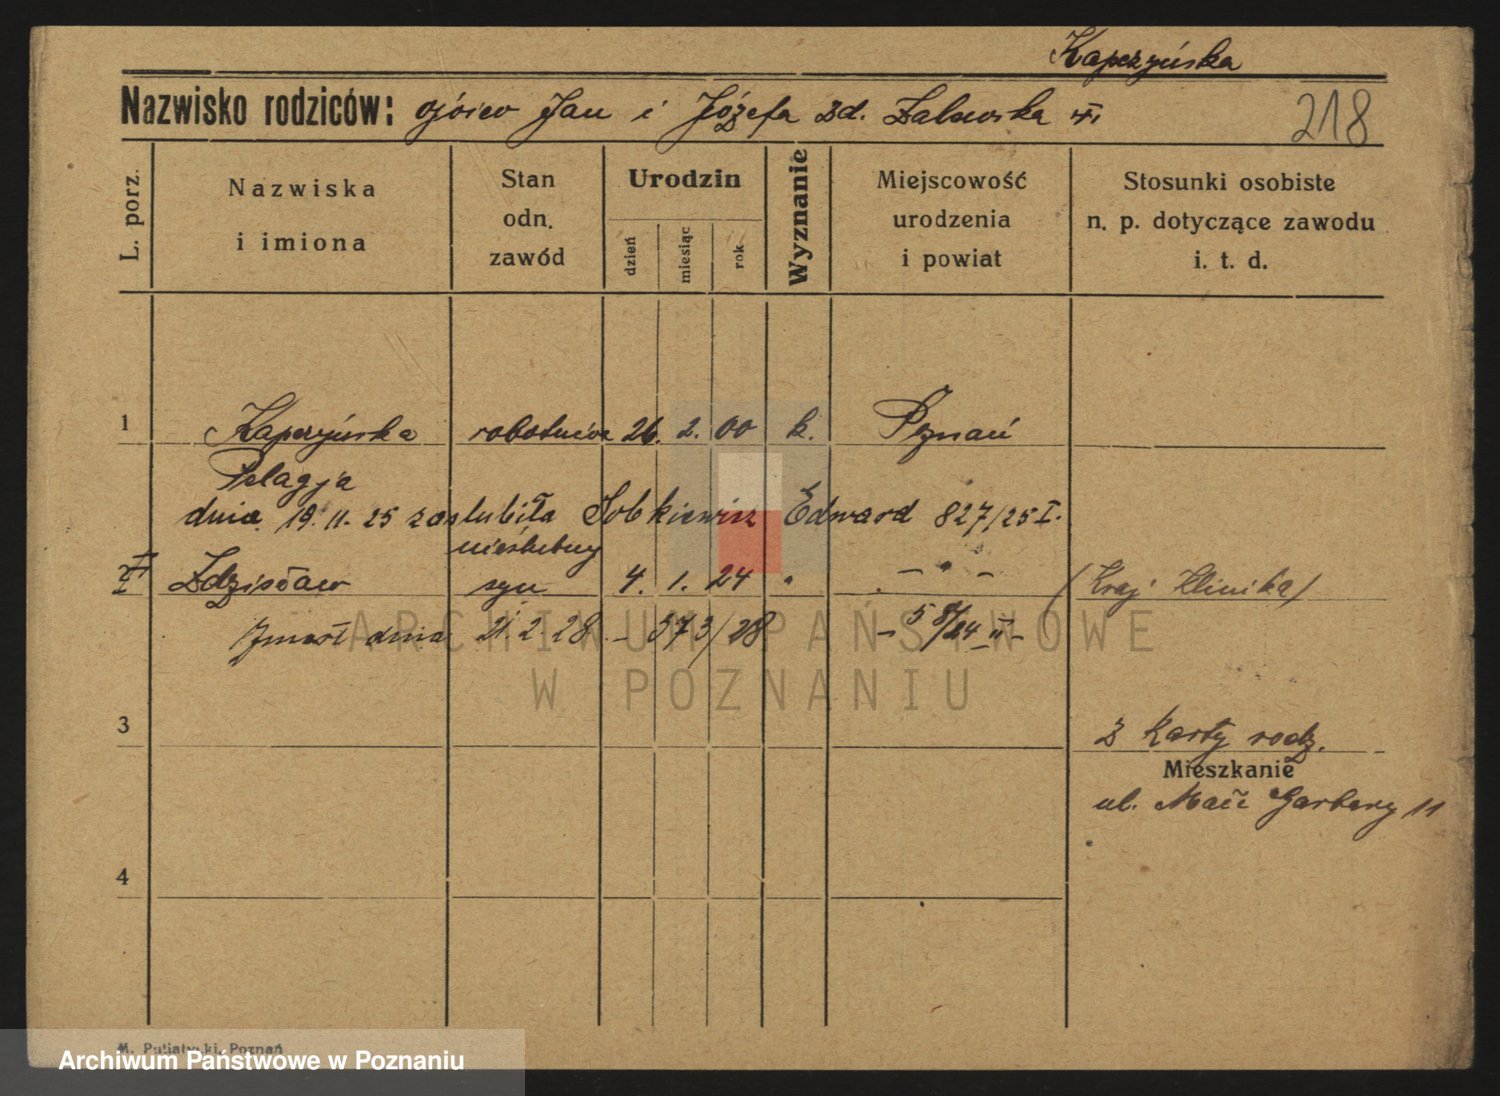 Kapczyńska
Nazwisko rodziców: ojciec Jan i Józefa zd. Zalewska
218
L. porz.
Nazwiska
i imiona
Stan
odn.
zawód
Urodzin
dzień
miesiąc
rok
Wyznanie
Miejscowość
urodzenia
i powiat
Stosunki osobiste
n. p. dotyczące zawodu
i. t. d.
1 Kapczyńska robotnica 26. 2. 00 k. Poznań
Pelagja
dnia 19.11.25 zaślubiła Sobkiewicz Edward 827/25 I.
nieślubny
2 Zdzisław syn 4. 1. 24 " - " - (Kraj. Klinika)
zmarł dnia 21.2.28 - 373/28 - 58/24 II -
ARCHIWUM PAŃSTWOWE
W POZNANIU
3
z karty rodz.
Mieszkanie
ul. Małe Garbary 11
4
M. Putiatycki, Poznań
Archiwum Państwowe w Poznaniu